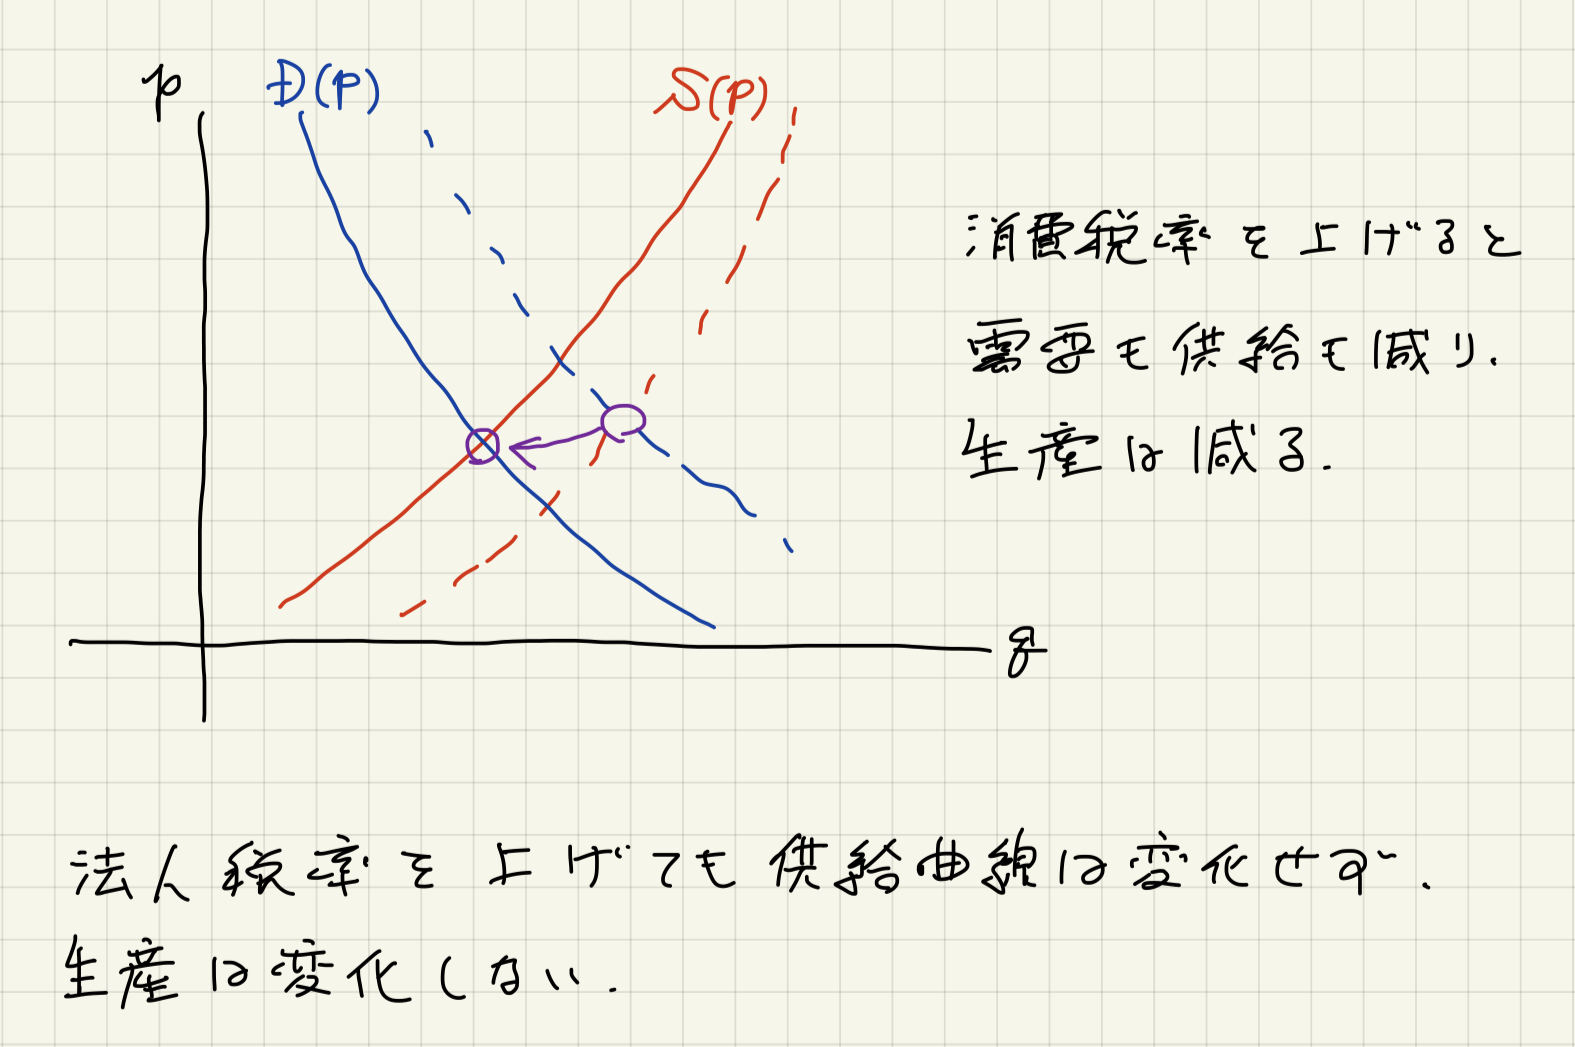 p
D(p)
S(p)
消費税率を上げると
需要も供給も減り.
生産は減る.
q
法人税率を上げても供給曲線は変化せず.
生産は変化しない.